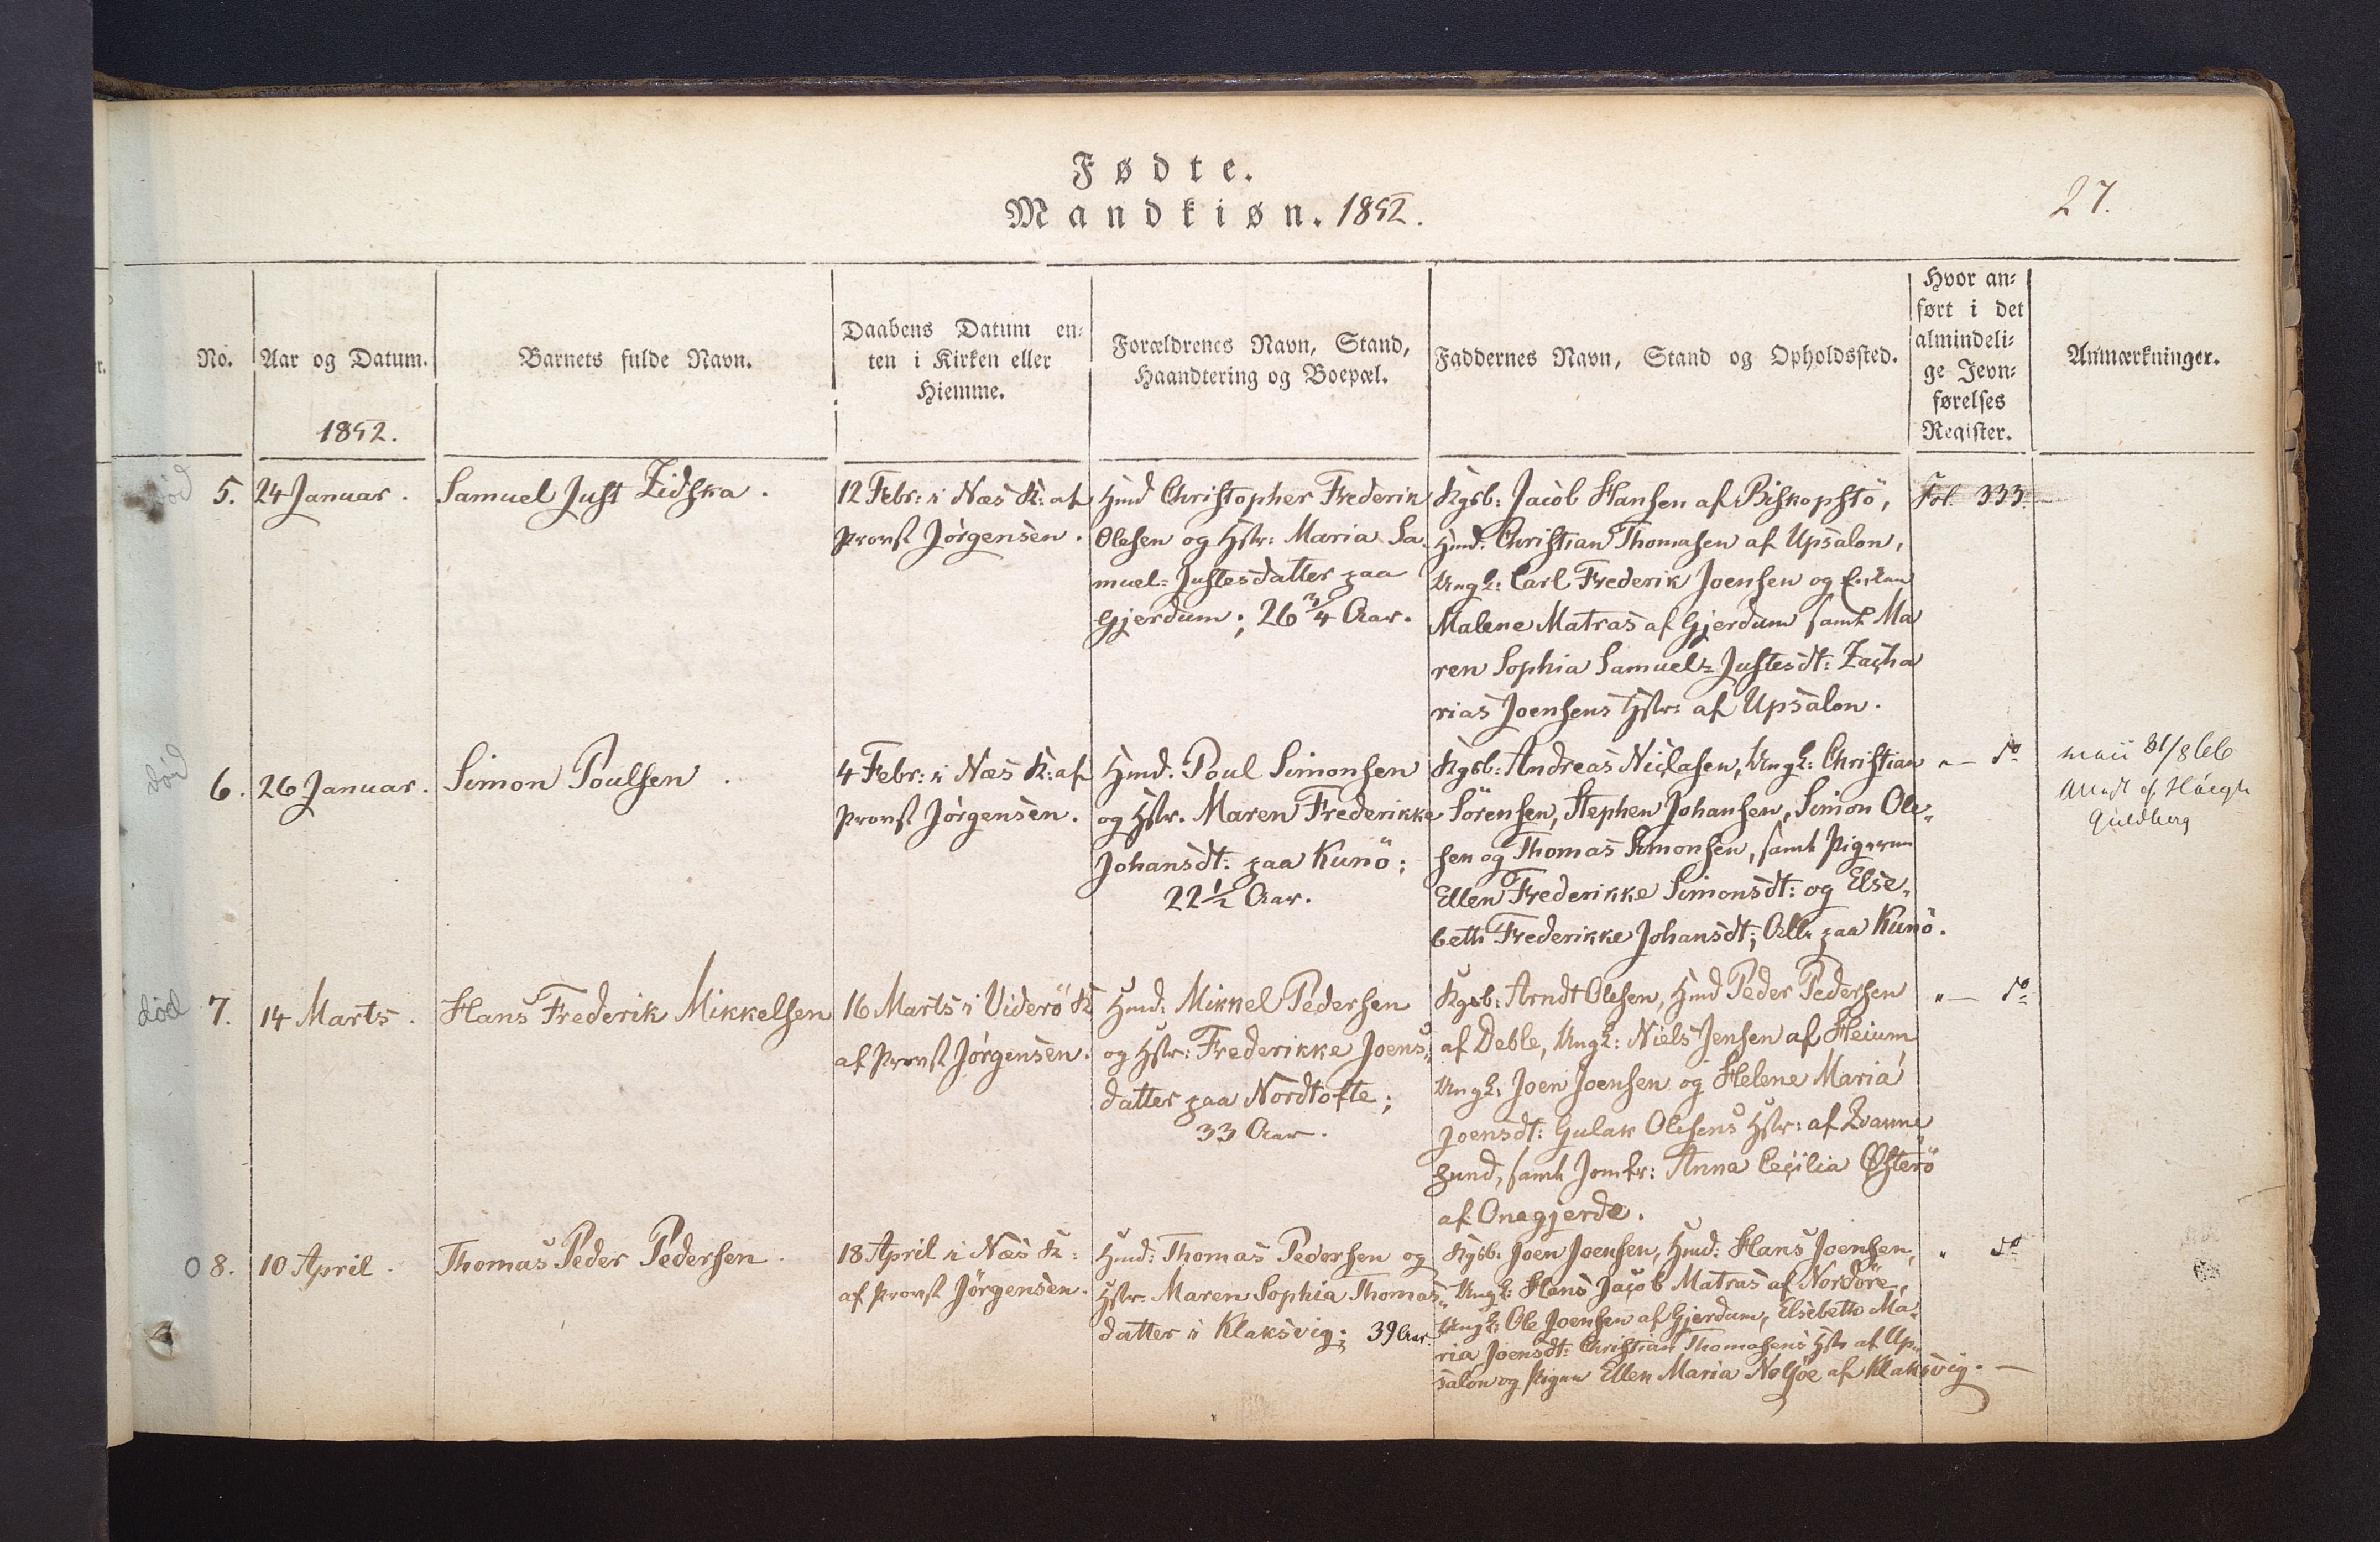 Fødte.
Mandkiøn. 1852.
27.
No.
Aar og Datum.
1852.
Barnets fulde Navn.
Daabens Datum en-
ten i Kirken eller
Hiemme.
Forældrenes Navn, Stand,
Haandtering og Boepæl.
Faddernes Navn, Stand og Opholdssted.
Hvor an-
ført i det
almindeli-
ge Jevn-
førelses
Register.
Anmærkninger.
død
5.
24 Januar.
Samuel Just Zidska.
12 Febr: i Næs K: af
Provst Jörgensen.
Hmd Christopher Frederik
Olesen og Hstr: Maria Sa-
muel-Justesdatter paa
Gjerdum; 26 3/4 Aar.
Kgsb: Jacob Hansen af Biskopstö,
Hmd: Christian Thomasen af Upsalon,
Ungk: Carl Frederik Joensen og Enken
Malene Matras af Gjerdum samt Ma
ren Sophia Samuel-Justesdt: Zacha
rias Joensens Hstr: af Upsalon.
Fol. 333.
død
6.
26 Januar.
Simon Poulsen.
4 Febr: i Næs K: af
Provst Jörgensen.
Hmd. Poul Simonsen
og Hstr. Maren Frederikke
Johansdt: paa Kunö;
22 1/2 Aar.
Kgsb: Andreas Niclasen, Ungk: Christian
Sörensen, Stephen Johansen, Simon Ole-
sen og Thomas Simonsen, samt Pigerne
Ellen Frederikke Simonsdt: og Else-
beth Frederikke Johansdt; Alle paa Kunö.
"— do
31/8 66
Guldberg
død
7.
14 Marts.
Hans Frederik Mikkelsen
16 Marts i Viderö K
af Provst Jörgensen.
Hmd: Mikkel Pedersen
og Hstr: Frederikke Joens-
datter paa Nordtofte;
33 Aar.
Kgsb: Arndt Olesen, Hmd Peder Pedersen
af Deble, Ungk: Niels Jensen af Heium
Ungk: Joen Joensen og Helene Maria
Joensdt: Gulak Olesens Hstr: af Qvanne
sund, samt Jomfr: Anna Cecilia Østerö
af Onagjerde.
"— do
o 8.
10 April.
Thomas Peder Pedersen.
18 April i Næs K:
af Provst Jörgensen.
Hmd: Thomas Pedersen og
Hstr: Maren Sophia Thomas-
datter i Klaksvig; 39 Aar.
Kgsb. Joen Joensen, Hmd: Hans Joensen,
Ungk: Hans Jacob Matras af Nordöre,
Ungk: Ole Joensen af Gjerdum, Elsebeth Ma-
ria Joensdt: Christian Thomasens Hstr af Up-
salon og Pigen Ellen Maria Nolsöe af Klaksvig.
" do